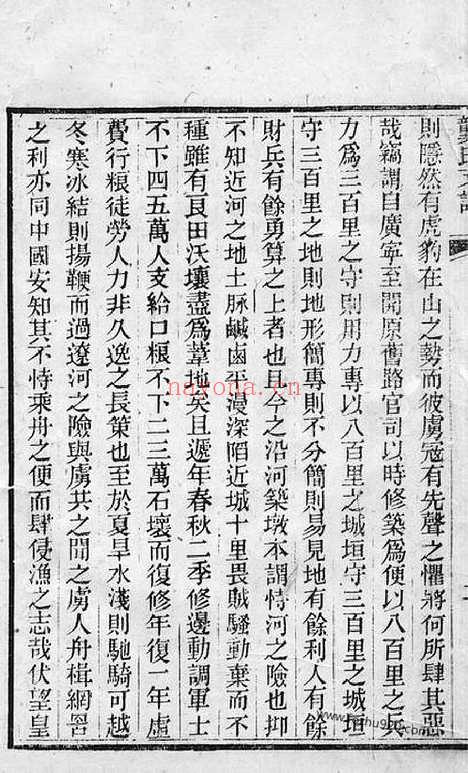 則隱然有虎豹在山之勢而彼虜寇有先聲之懼將何所肆其惡
哉竊謂自廣寧至開原舊路官司以時修築為便以八百里之兵
力為三百里之守則用力專以八百里之城垣守三百里之城垣
守三百里之地則地形簡專則不分簡則易見地有餘利人有餘
財兵有餘勇算之上者也且今之沿河築墩本謂恃河之險也抑
不知近河之地土脉鹹鹵平漫深陷近城十里畏賊騷動棄而不
種雖有良田沃壤盡為葦地矣且遞年春秋二季修邊動調軍士
不下四五萬人支給口粮不下二三萬石壞而復修年復一年虛
費行粮徒勞人力非久逸之長策也至於夏旱水淺則馳騎可越
冬寒冰結則揚鞭而過遼河之險與虜共之聞之虜人舟楫網罟
之利亦同中國安知其不恃乘舟之便而肆侵漁之志哉伏望皇
nayona.cn